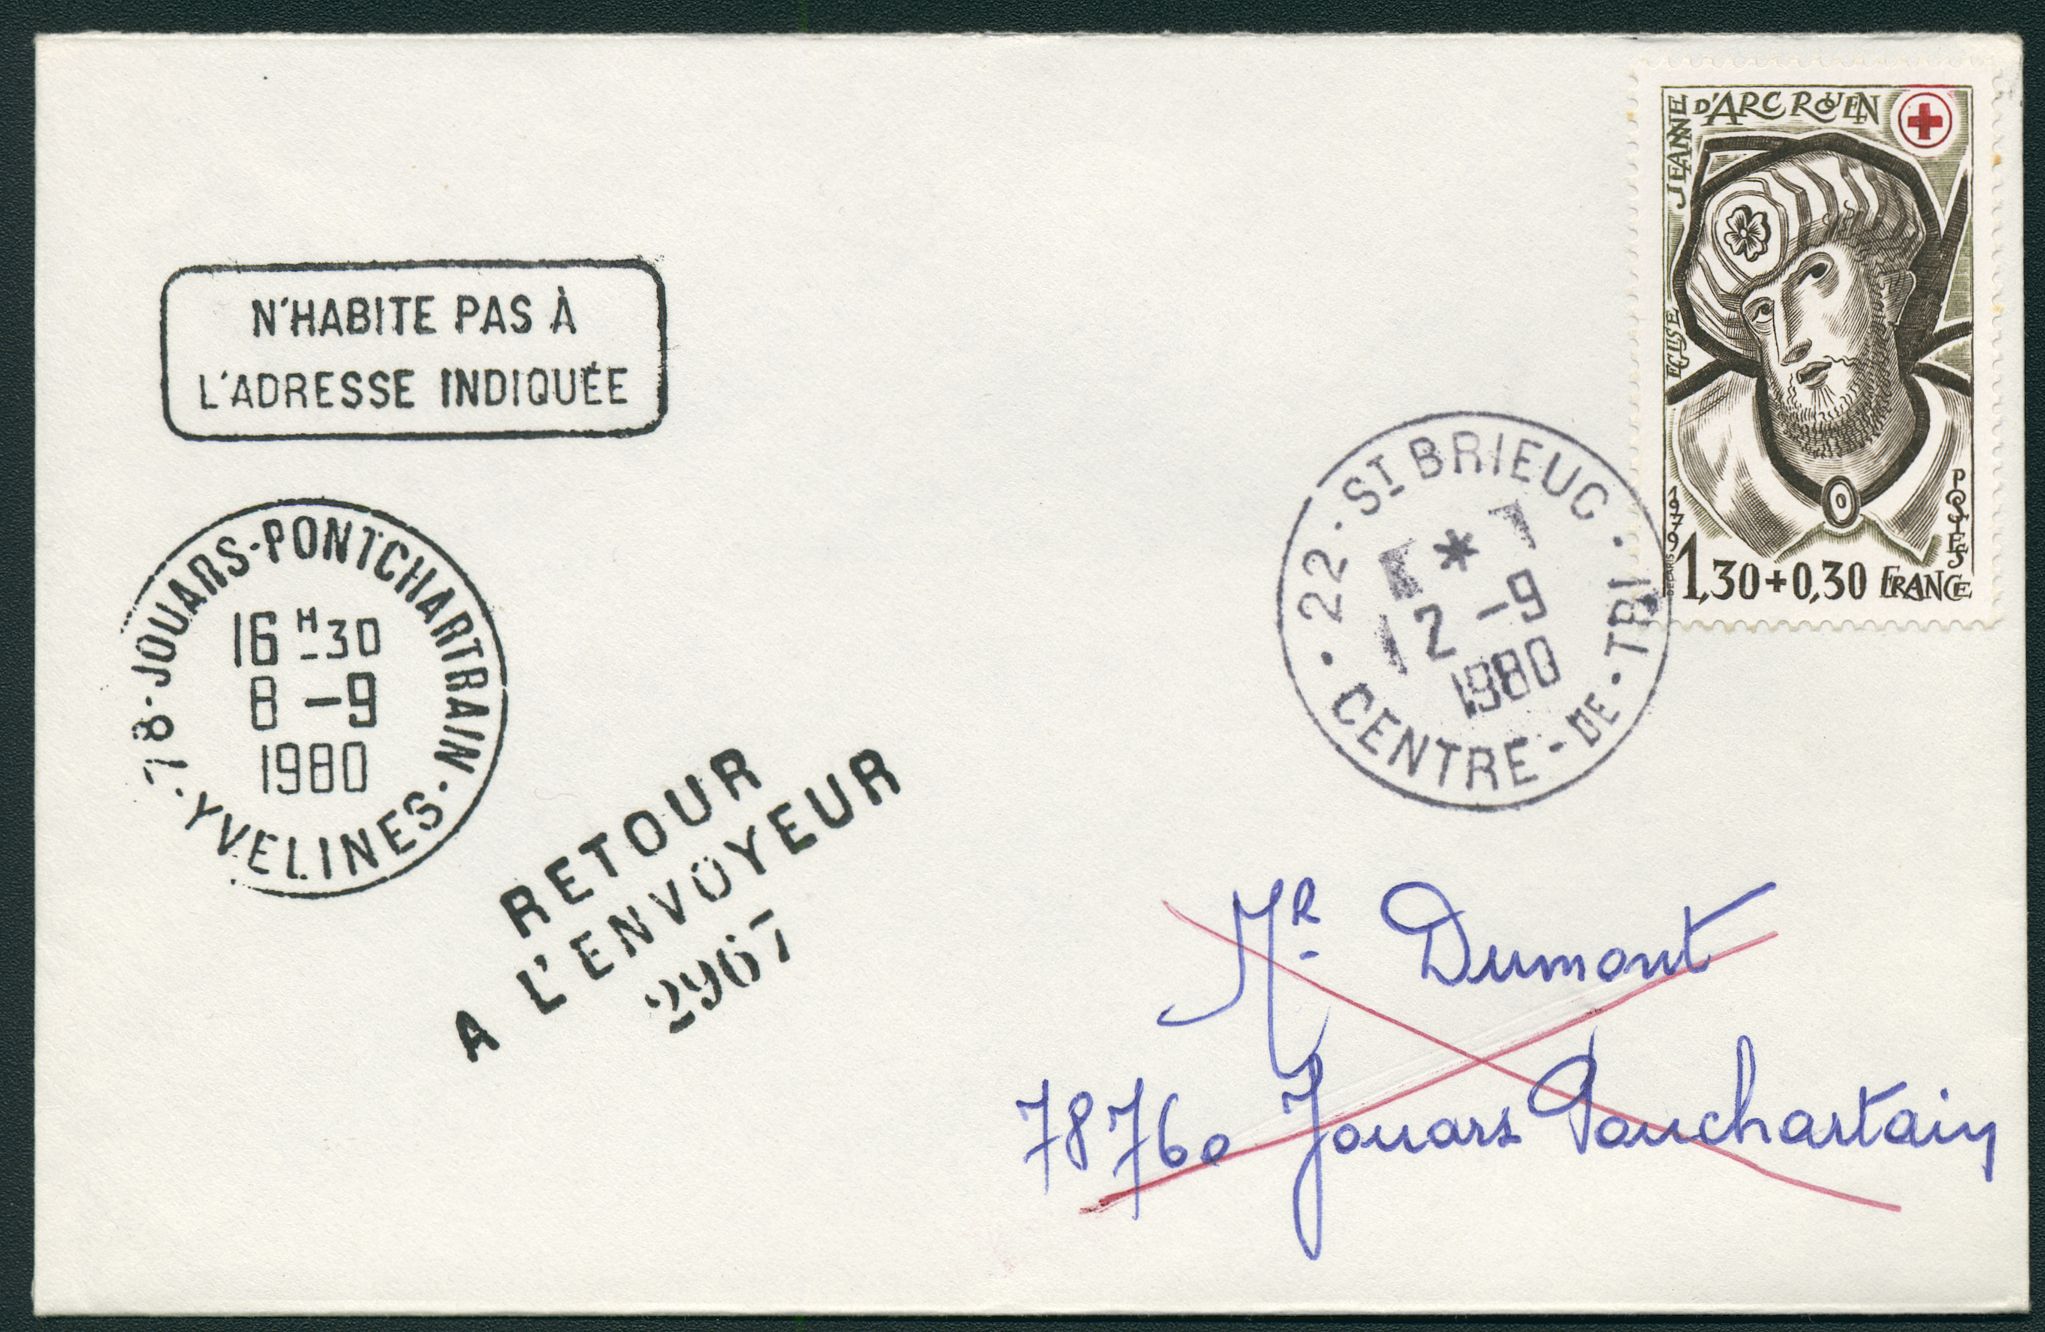 N'HABITE PAS À
L'ADRESSE INDIQUÉE
78-JOUARS-PONTCHARTRAIN
16 H-30
8 -9
1980
YVELINES
RETOUR
A L'ENVOYEUR
2967
22 · ST BRIEUC ·
*
2 -9
1980
CENTRE-DE-TRI
EGLISE JEANNE D'ARC ROUEN
1979
POSTES
DECARIS
1,30+0,30 FRANCE
MR Dumont
78760 Jouars Ponchartain